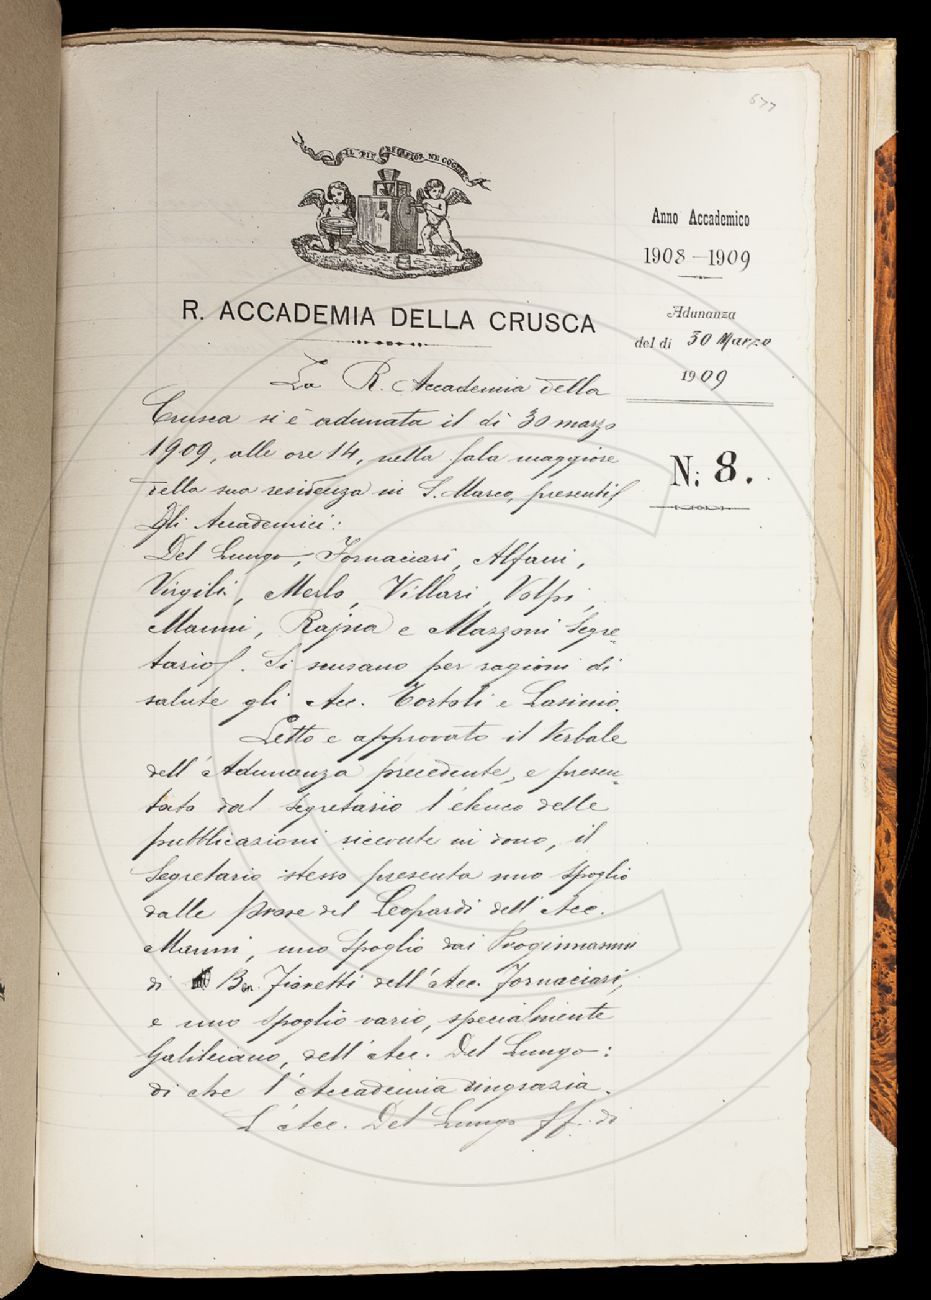 677
IL PIÙ BEL FIOR NE COGLIE
Anno Accademico
1908-1909
R. ACCADEMIA DELLA CRUSCA
Adunanza
del dì 30 Marzo
1909
N: 8.
La R. Accademia della
Crusca si è adunata il dì 30 marzo
1909, alle ore 14, nella sala maggiore
della sua residenza in S. Marco, presenti
Gli Accademici:
Del Lungo, Fornaciari, Alfani,
Virgili, Merlo, Villari, Volpi,
Manni, Rajna e Mazzoni Segre-
tario. Si scusano per ragioni di
salute gli Acc. Tortoli e Lasinio.
Letto e approvato il Verbale
dell'Adunanza precedente, e presen-
tato dal Segretario l'elenco delle
pubblicazioni ricevute in dono, il
Segretario stesso presenta uno spoglio
dalle prose del Leopardi dell'Acc.
Manni, uno spoglio dai Proginnasmi
di Ben. Fioretti dell'Acc. Fornaciari,
e uno spoglio vario, specialmente
Galileiano, dell'Acc. Del Lungo:
di che l'Accademia ringrazia.
L'Acc. Del Lungo ff. di